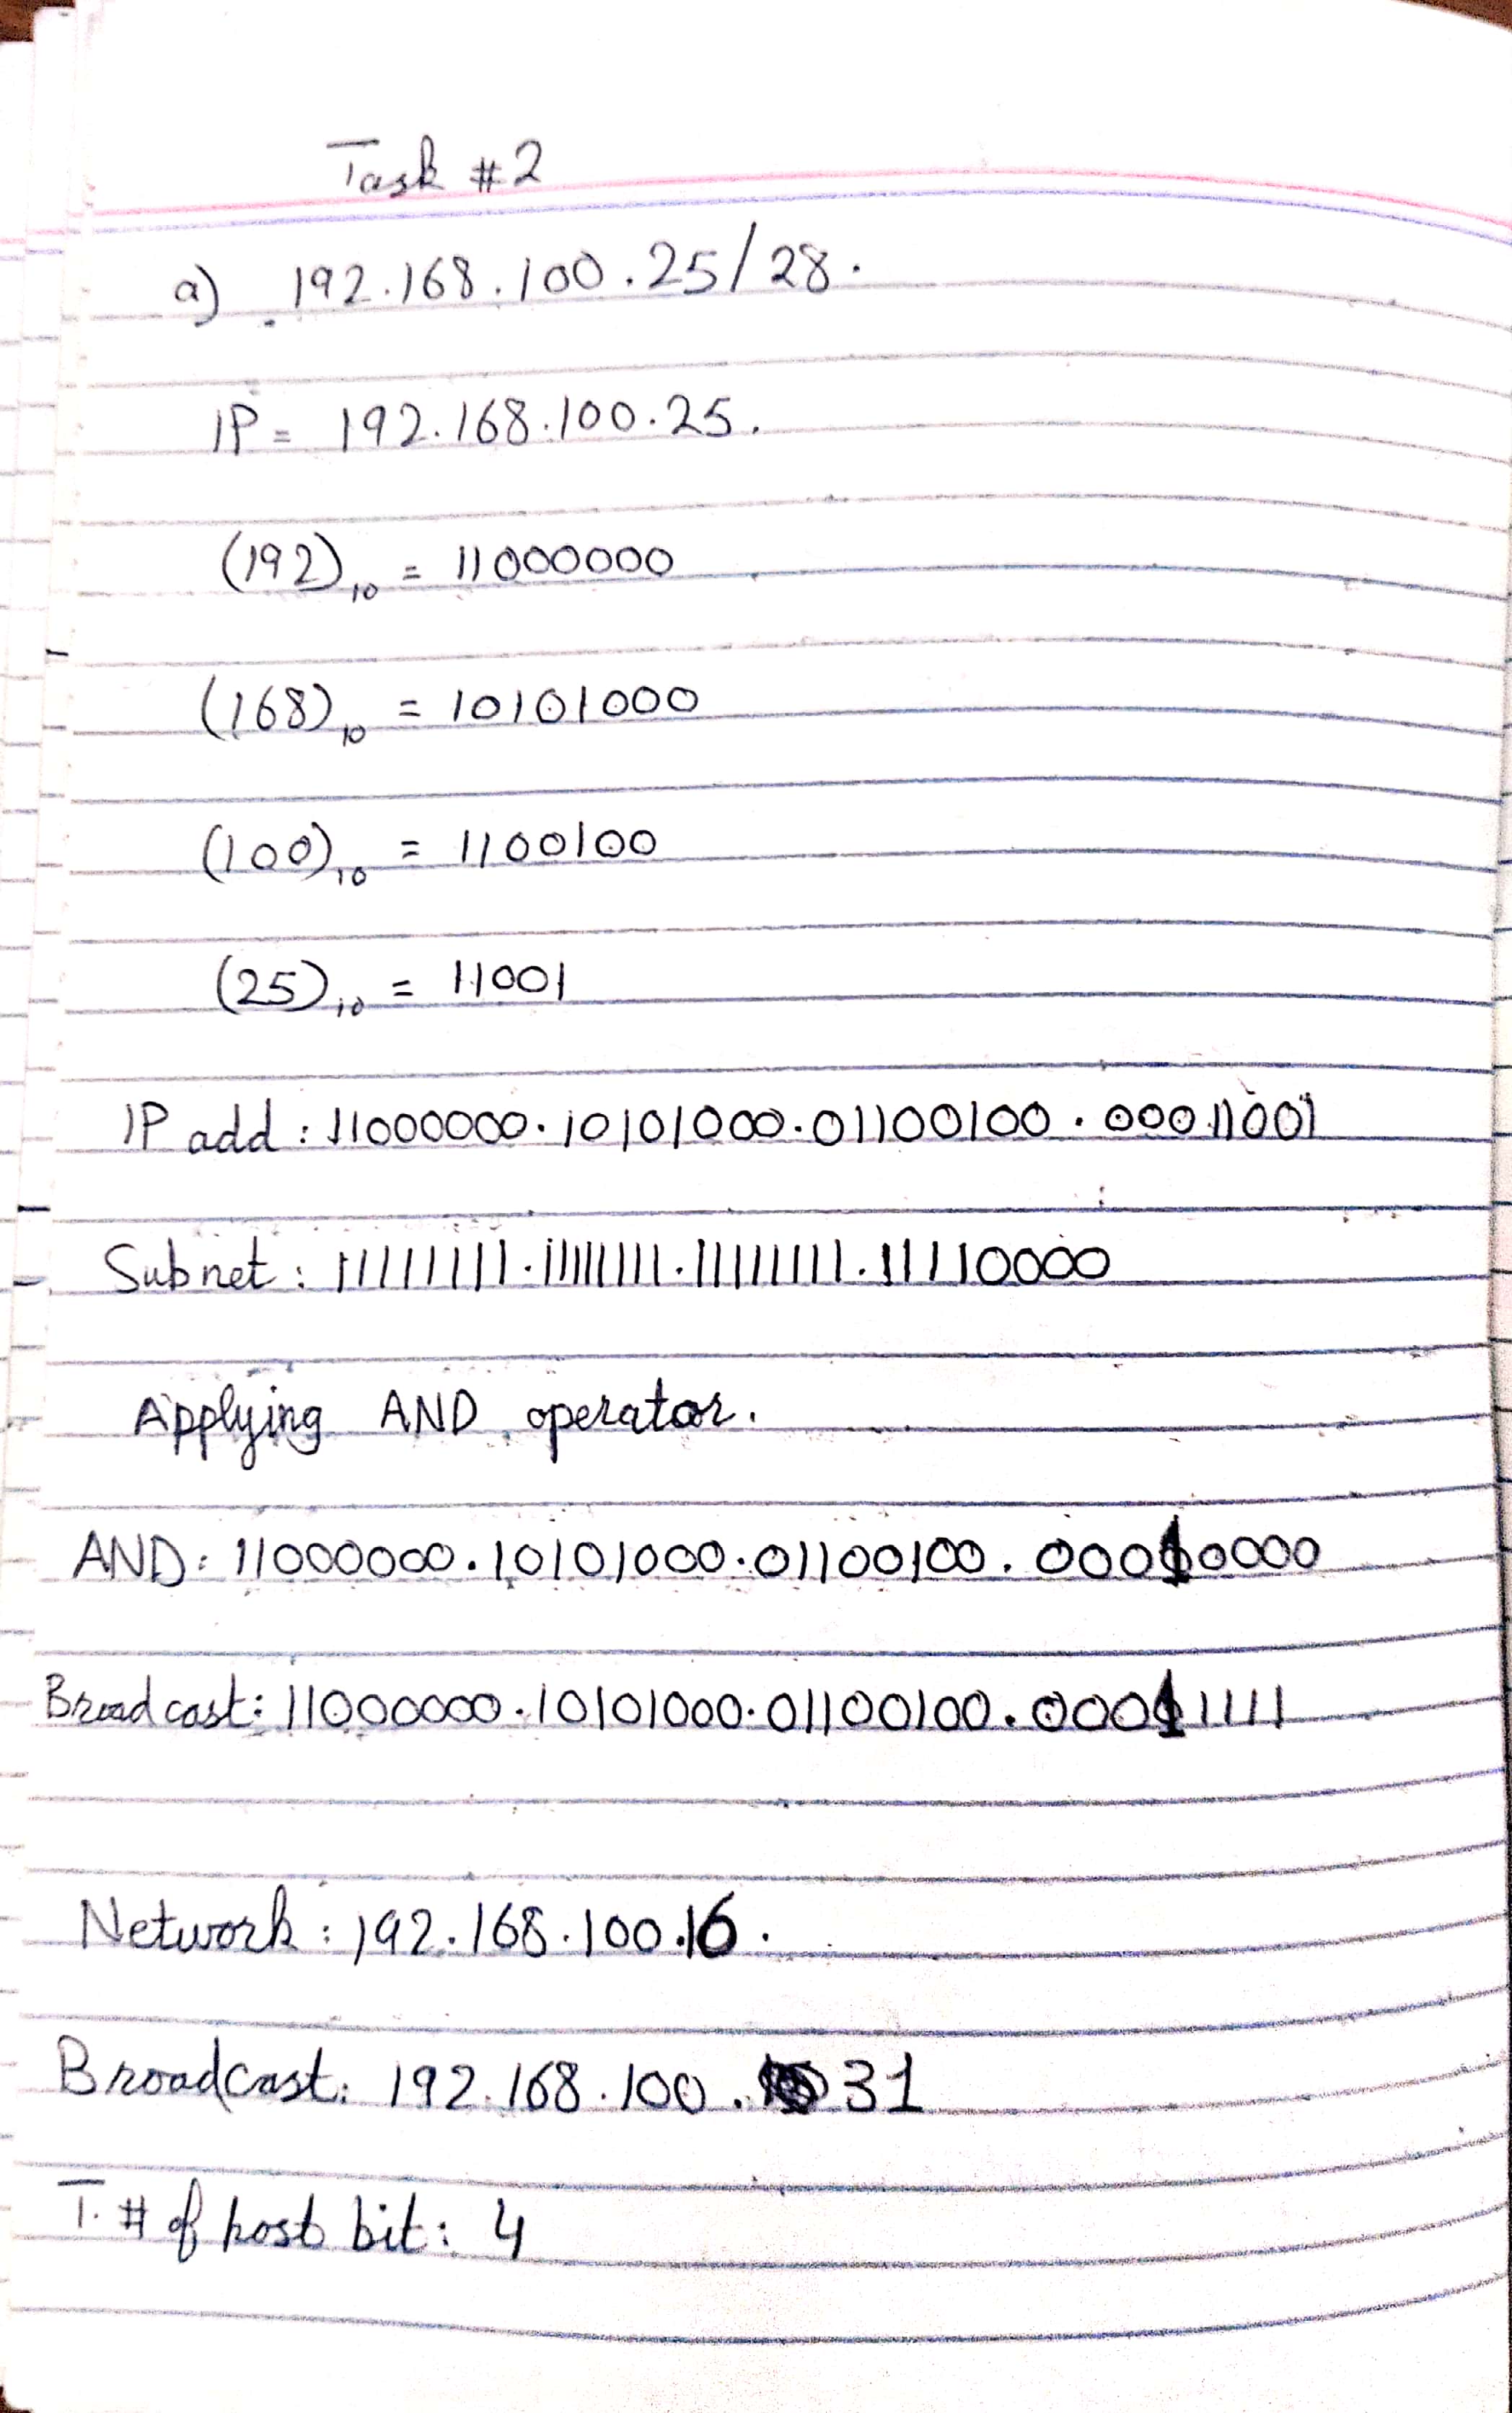 Task #2
a) 192.168.100.25/28.
IP = 192.168.100.25.
(192)10 = 11000000
(168)10 = 10101000
(100)10 = 1100100
(25)10 = 11001
IP add : 11000000.10101000.01100100.00011001
Subnet : 11111111.11111111.11111111.11110000
Applying AND operator.
AND: 11000000.10101000.01100100.00010000
Broadcast: 11000000.10101000.01100100.00011111
Network : 192.168.100.16.
Broadcast: 192.168.100.31
T. # of host bit: 4